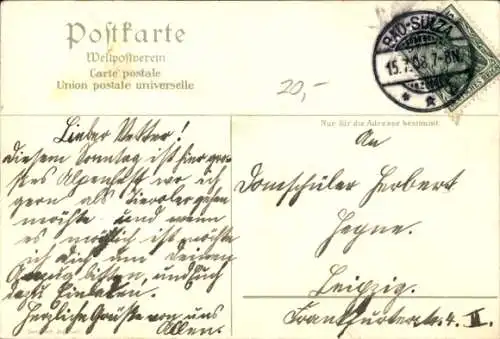 Postkarte
Weltpostverein
Carte postale
Union postale universelle
20,-
BAD-SULZA
15.7.08. 7-8N.
Nur für die Adresse bestimmt.
Lieber Vetter!
Diesem Sonntag ist hier gro-
ßes Alpenfest wo ich
gern als Tieroler gehen
möchte. und wenn
es möglich ist möchte
ich Dich um Deinen
Anzug bitten, und auch
dazu Einladen.
Herzliche Grüße von uns
Allen.
An
Domschüler Herbert
Leipzig.
Frankfurterstr. 4. II.